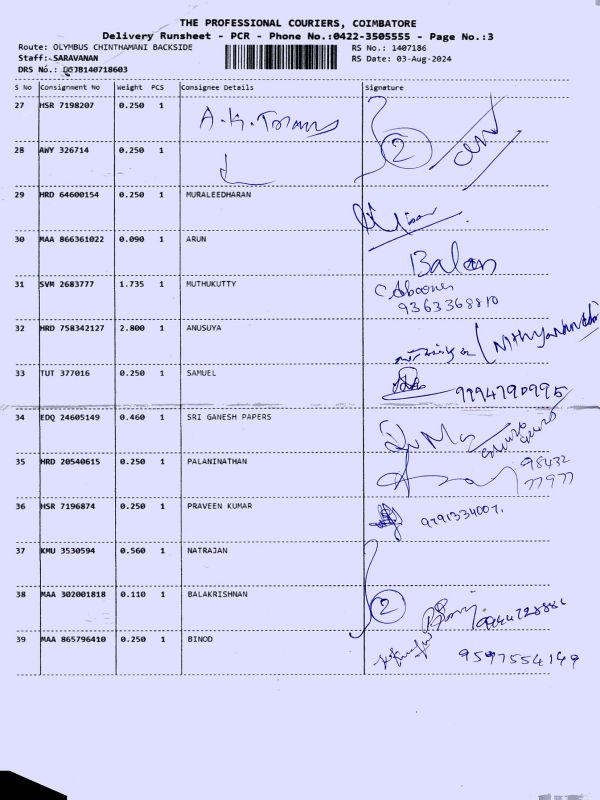 THE PROFESSIONAL COURIERS, COIMBATORE
Delivery Runsheet - PCR - Phone No.:0422-3505555 - Page No.:3
Route: OLYMBUS CHINTHAMANI BACKSIDE RS No.: 1407186
Staff: SARAVANAN RS Date: 03-Aug-2024
DRS No.: DG7B140718603
S No Consignment No Weight PCS Consignee Details Signature
27 HSR 7198207 0.250 1
28 AWY 326714 0.250 1 2
29 HRD 64600154 0.250 1 MURALEEDHARAN
30 MAA 866361022 0.090 1 ARUN Balan
31 SVM 2683777 1.735 1 MUTHUKUTTY 9363368810
32 HRD 758342127 2.800 1 ANUSUYA
33 TUT 377016 0.250 1 SAMUEL 9994790995
34 EDQ 24605149 0.460 1 SRI GANESH PAPERS
35 HRD 20540615 0.250 1 PALANINATHAN 98432
77977
36 HSR 7196874 0.250 1 PRAVEEN KUMAR 9791334007.
37 KMU 3530594 0.560 1 NATRAJAN
38 MAA 302001818 0.110 1 BALAKRISHNAN 2
39 MAA 865796410 0.250 1 BINOD 9597554149